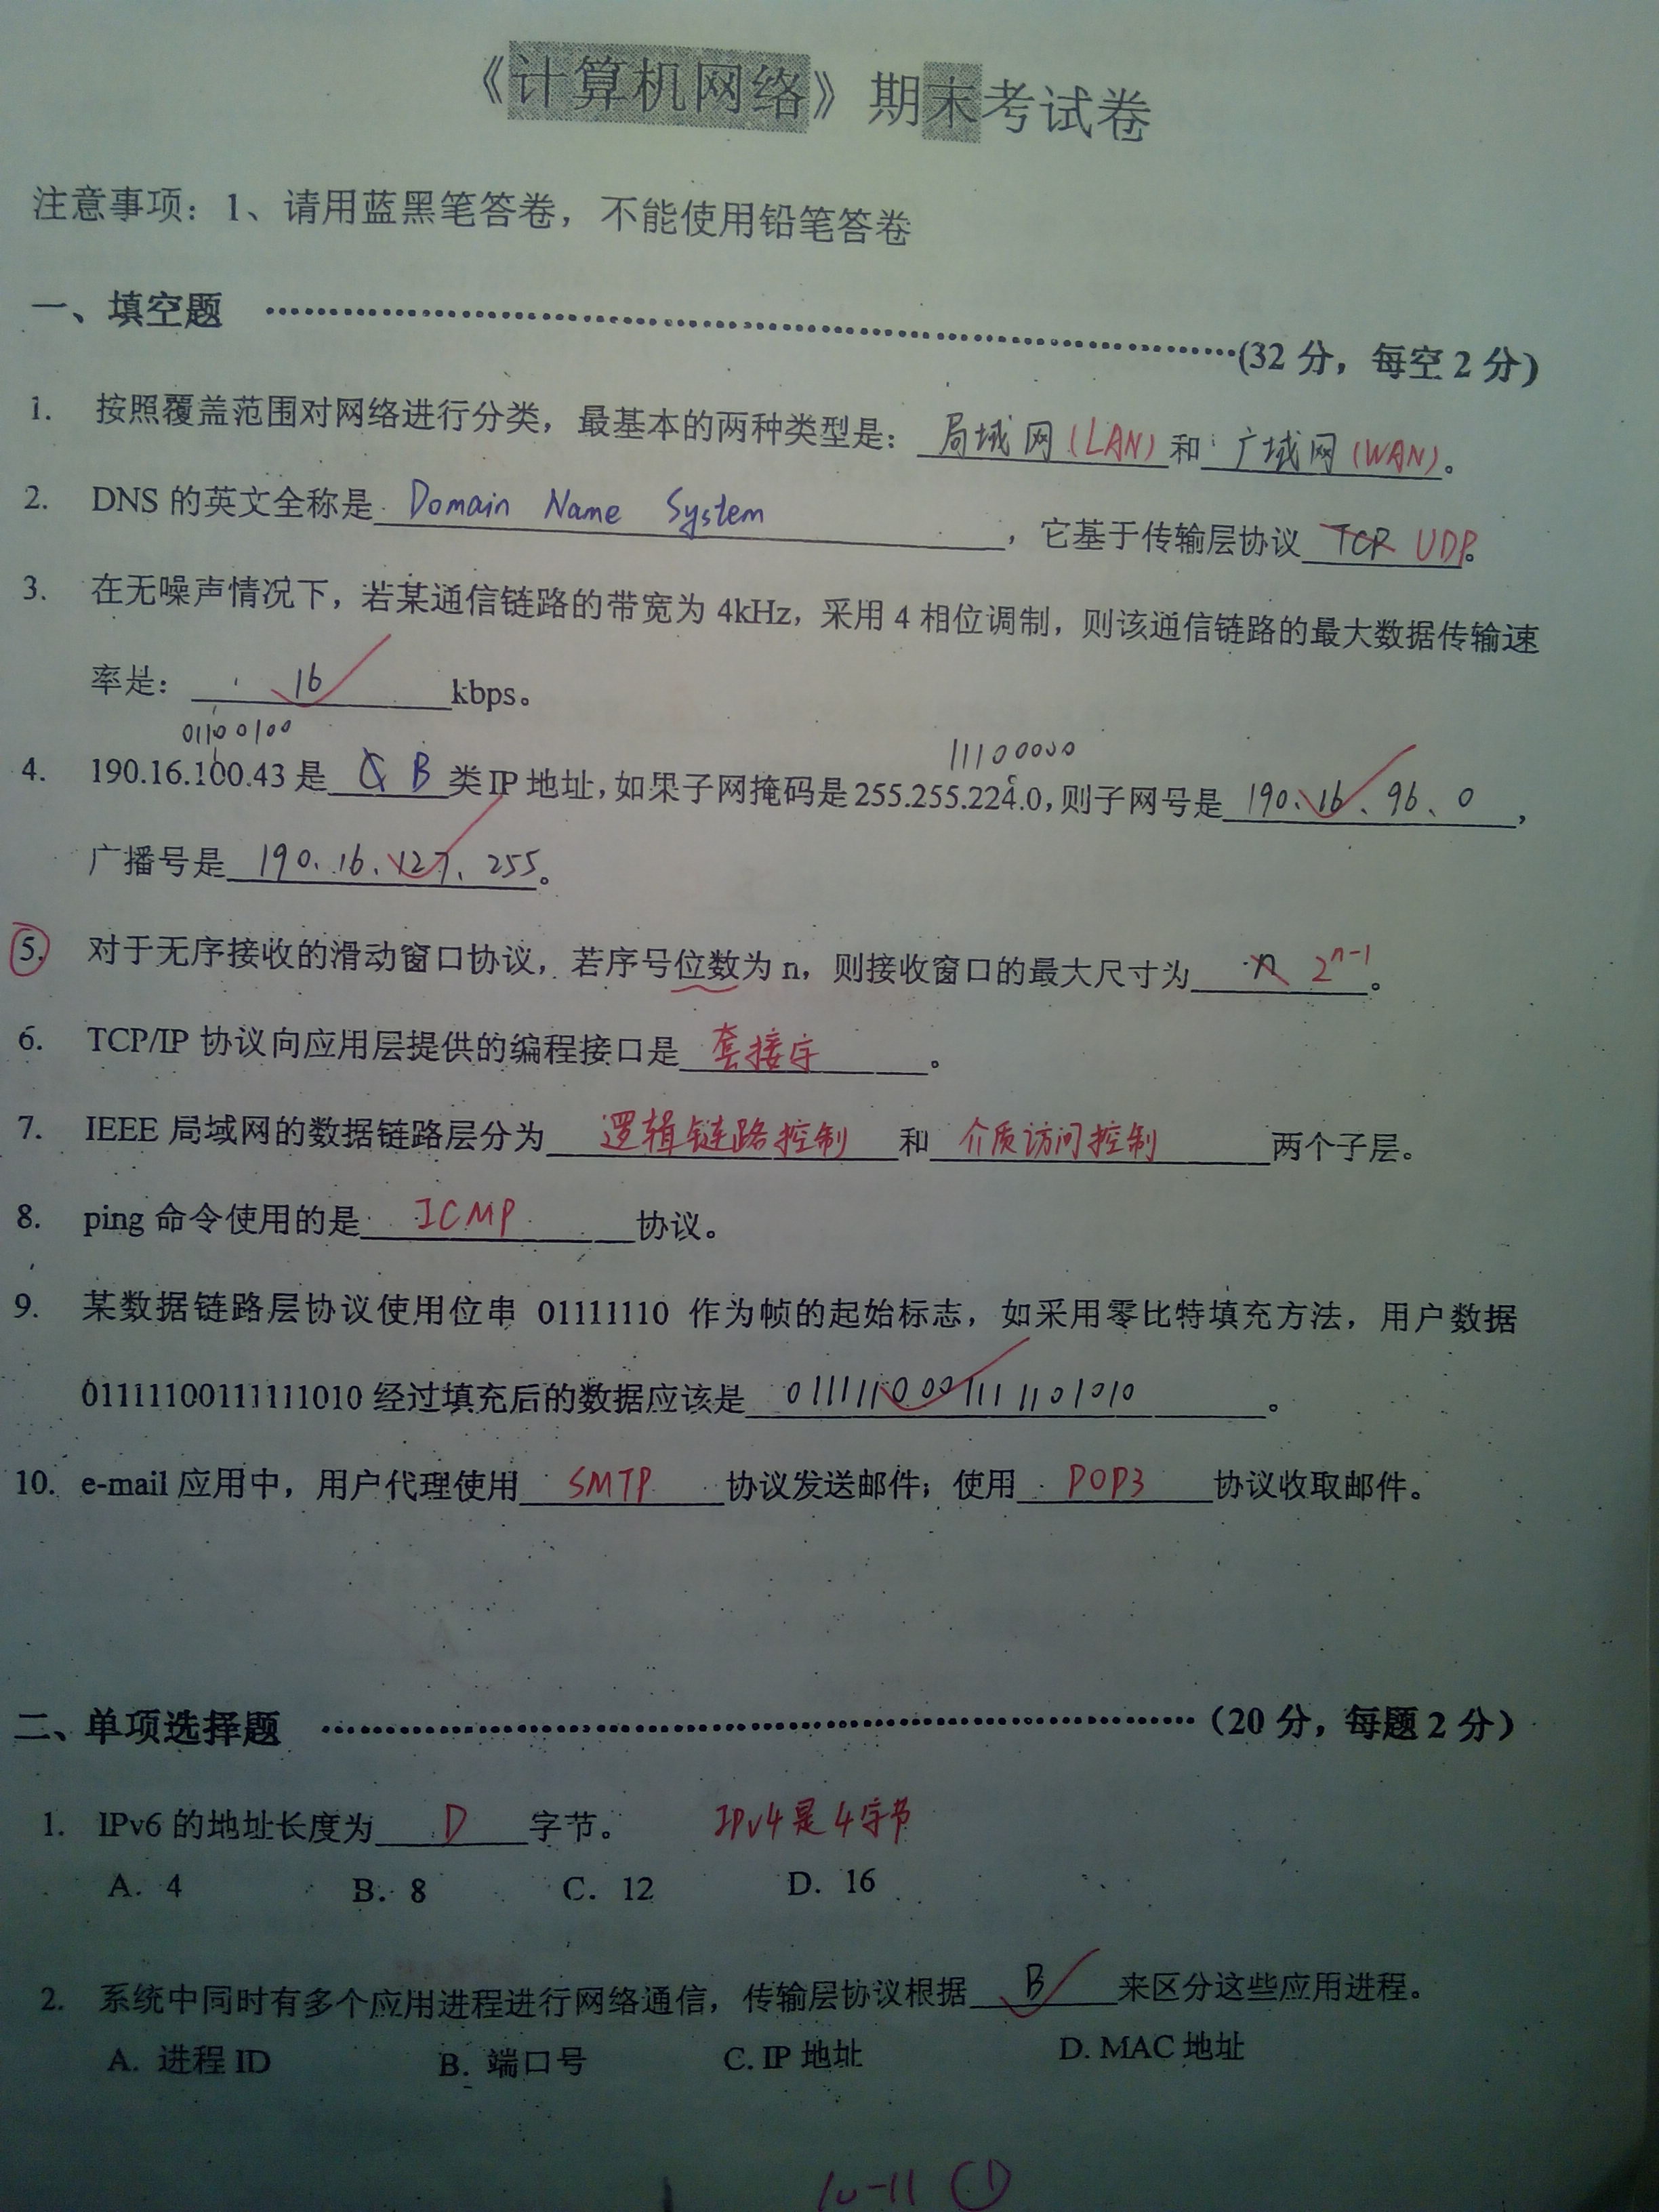 《计算机网络》期末考试卷
注意事项：1、请用蓝黑笔答卷，不能使用铅笔答卷
一、填空题 ……………………………………………………(32 分，每空 2 分)
1. 按照覆盖范围对网络进行分类，最基本的两种类型是：局域网(LAN)和广域网(WAN)。
2. DNS 的英文全称是 Domain Name System ，它基于传输层协议 TCP UDP。
3. 在无噪声情况下，若某通信链路的带宽为 4kHz，采用 4 相位调制，则该通信链路的最大数据传输速
率是： 16 kbps。
01100100
11100000
4. 190.16.100.43 是 C B 类 IP 地址，如果子网掩码是 255.255.224.0，则子网号是 190.16.96.0，
广播号是 190.16.127.255。
5. 对于无序接收的滑动窗口协议，若序号位数为 n，则接收窗口的最大尺寸为 n 2ⁿ⁻¹。
6. TCP/IP 协议向应用层提供的编程接口是 套接字 。
7. IEEE 局域网的数据链路层分为 逻辑链路控制 和 介质访问控制 两个子层。
8. ping 命令使用的是 ICMP 协议。
9. 某数据链路层协议使用位串 01111110 作为帧的起始标志，如采用零比特填充方法，用户数据
01111100111111010 经过填充后的数据应该是 0111110001111101010 。
10. e-mail 应用中，用户代理使用 SMTP 协议发送邮件；使用 POP3 协议收取邮件。
二、单项选择题 ……………………………………………………（20 分，每题 2 分）
1. IPv6 的地址长度为 D 字节。 IPv4是4字节
A. 4 B. 8 C. 12 D. 16
2. 系统中同时有多个应用进程进行网络通信，传输层协议根据 B 来区分这些应用进程。
A. 进程 ID B. 端口号 C. IP 地址 D. MAC 地址
10-11 ①